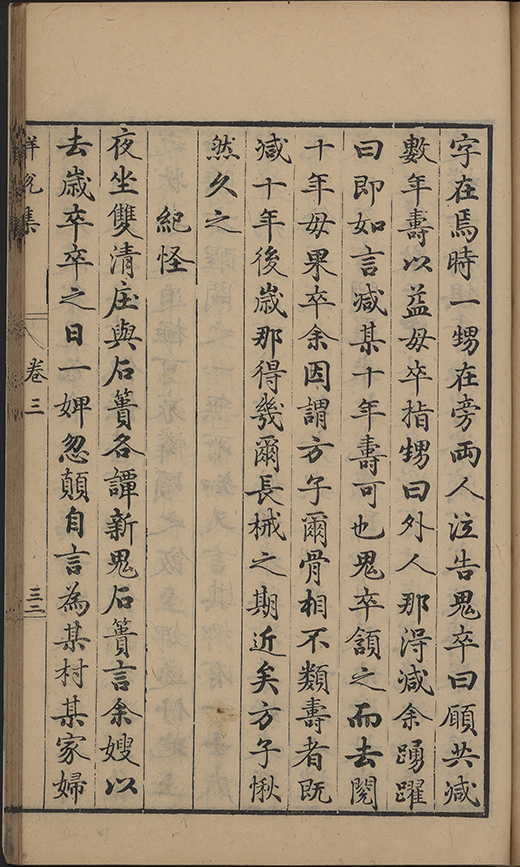 字在焉時一甥在旁兩人泣告鬼卒曰願共减
數年壽以益母卒指甥曰外人那得减余踴躍
曰即如言减某十年壽可也鬼卒頷之而去閱
十年母果卒余因謂方子爾骨相不類壽者既
减十年後歲那得幾爾長椷之期近矣方子愀
然久之
紀怪
夜坐雙清庄與石簣各譚新鬼石簣言余嫂以
去歲卒卒之日一婢忽顛自言為某村某家婦
解脫集
卷三
三二